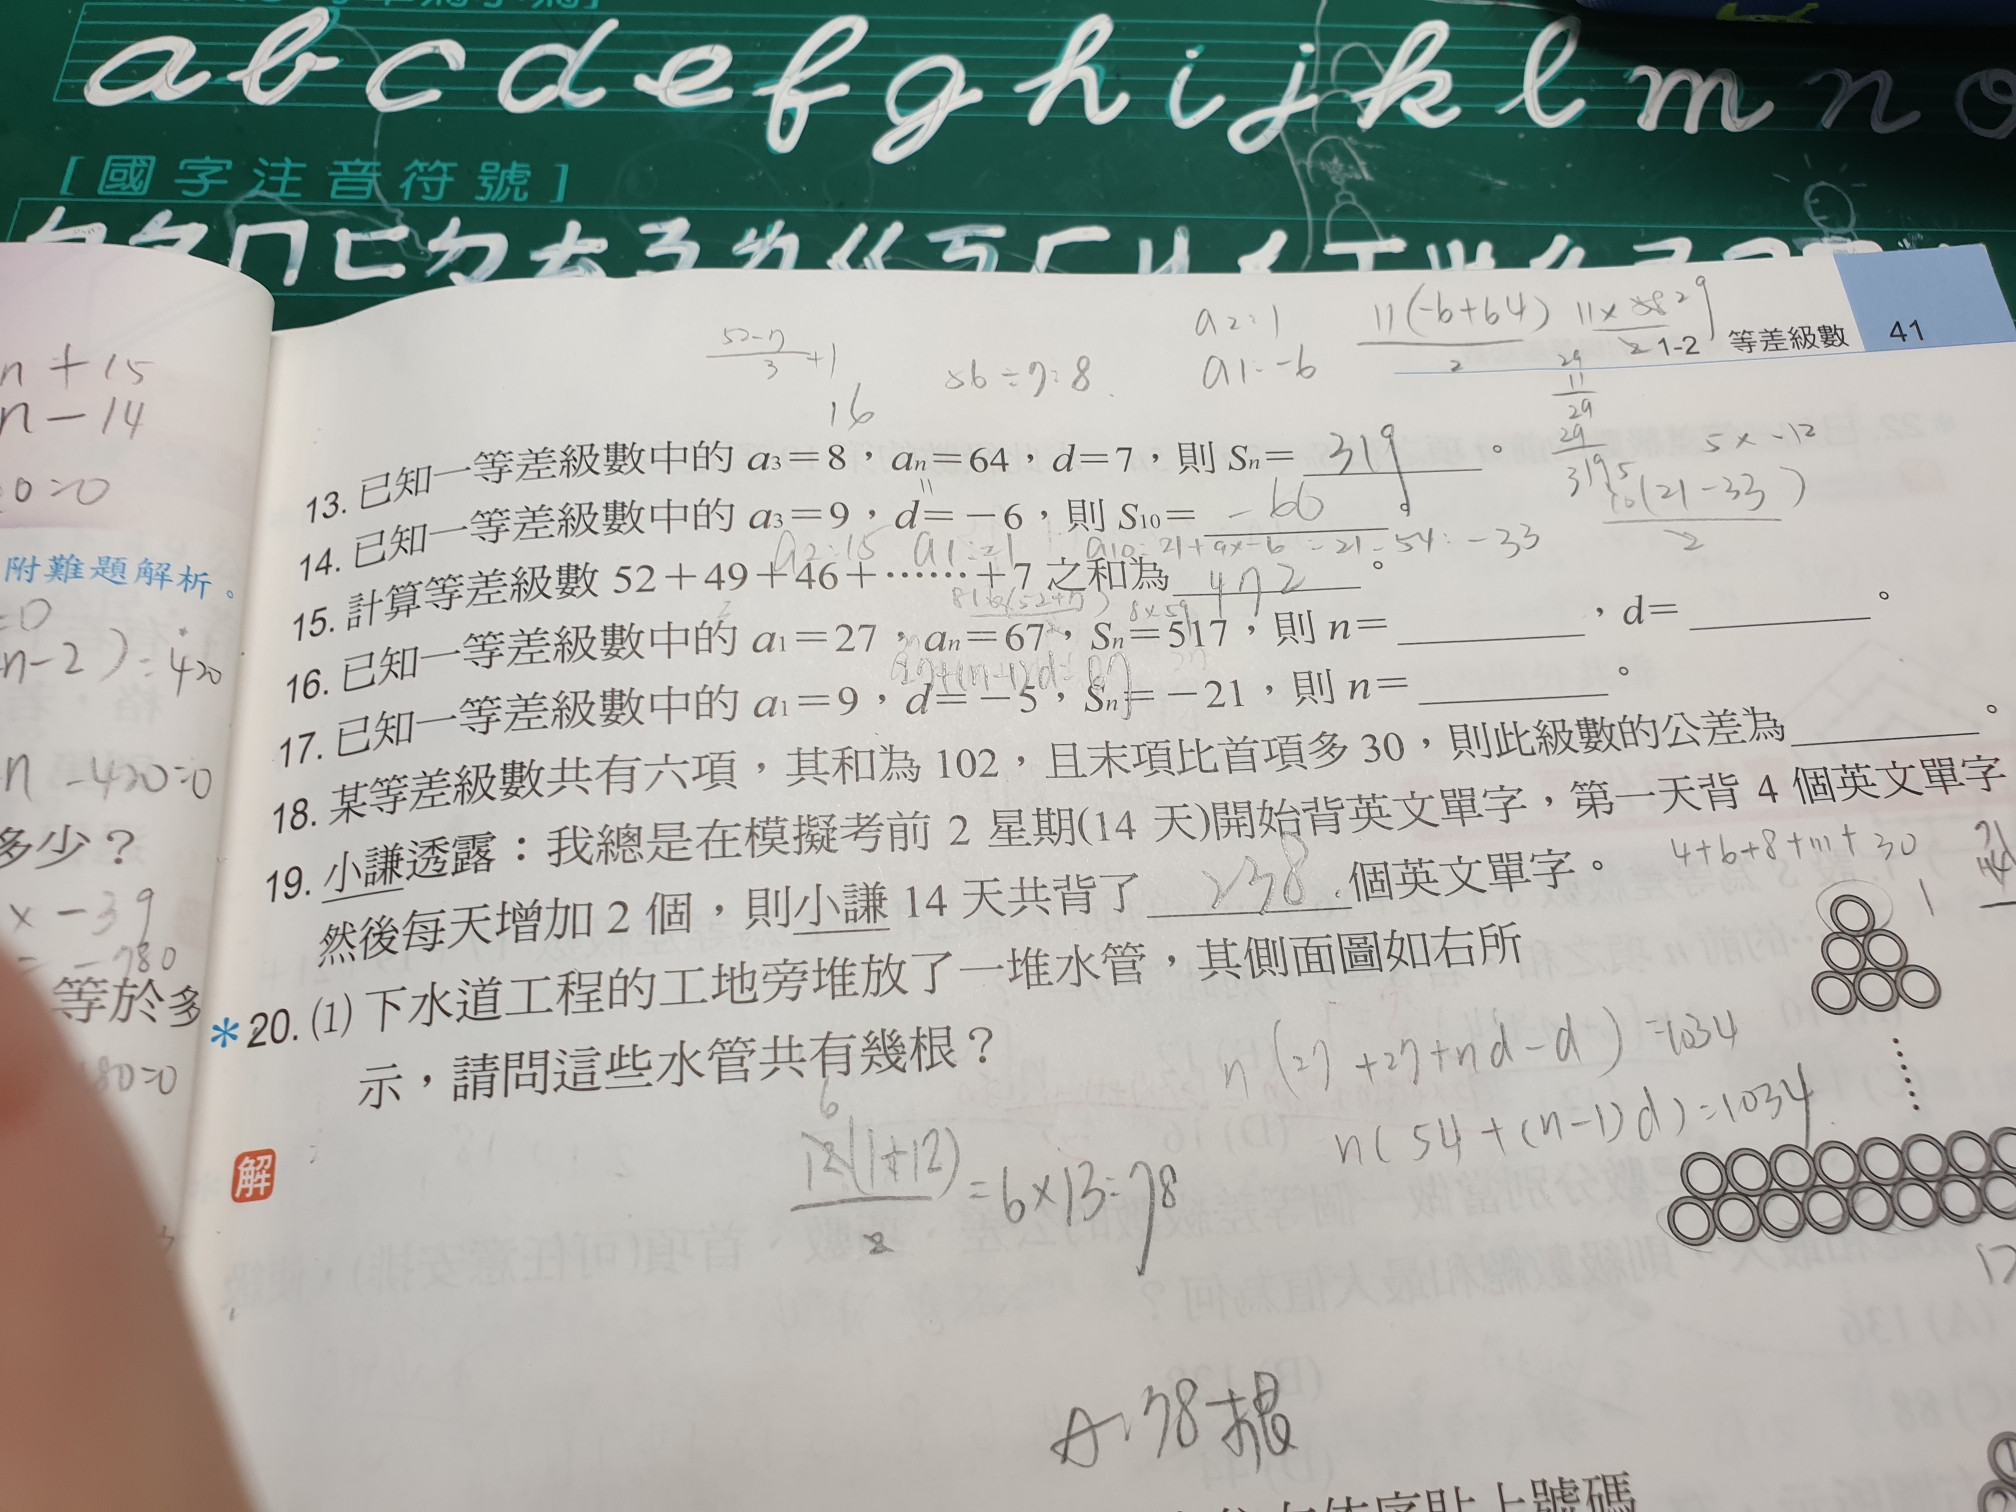 a b c d e f g h i j k l m n o
[ 國字注音符號 ]
n + 15
n - 14
0=0
附難題解析。
=0
n-2)=420
n -420=0
多少？
x -39
= -780
等於多
80=0
52-7
3
+1
16
56÷7=8
a2=1
a1=-6
11(-6+64)
2
1-2 等差級數 41
29
11
29
29
319
5×-12
(21-33)
2
13. 已知一等差級數中的 a3＝8，an＝64，d＝7，則 Sn＝ 319 。
14. 已知一等差級數中的 a3＝9，d＝－6，則 S10＝ -60
a2=15 a1=21 a10=21+9x-6=21-54=-33
15. 計算等差級數 52＋49＋46＋⋯⋯＋7 之和為 472 。
8×59
16. 已知一等差級數中的 a1＝27，an＝67，Sn＝517，則 n＝ ，d＝ 。
27+(n-1)d=67
17. 已知一等差級數中的 a1＝9，d＝－5，Sn＝－21，則 n＝ 。
18. 某等差級數共有六項，其和為 102，且末項比首項多 30，則此級數的公差為 。
19. 小謙透露：我總是在模擬考前 2 星期(14 天)開始背英文單字，第一天背 4 個英文單字
然後每天增加 2 個，則小謙 14 天共背了 238 個英文單字。
4+6+8+...+30
1
*20. (1) 下水道工程的工地旁堆放了一堆水管，其側面圖如右所
示，請問這些水管共有幾根？
n(27+27+nd-d)=1034
n(54+(n-1)d)=1034
解
6
12(1+12)
2
=6×13=78
12
A:78根